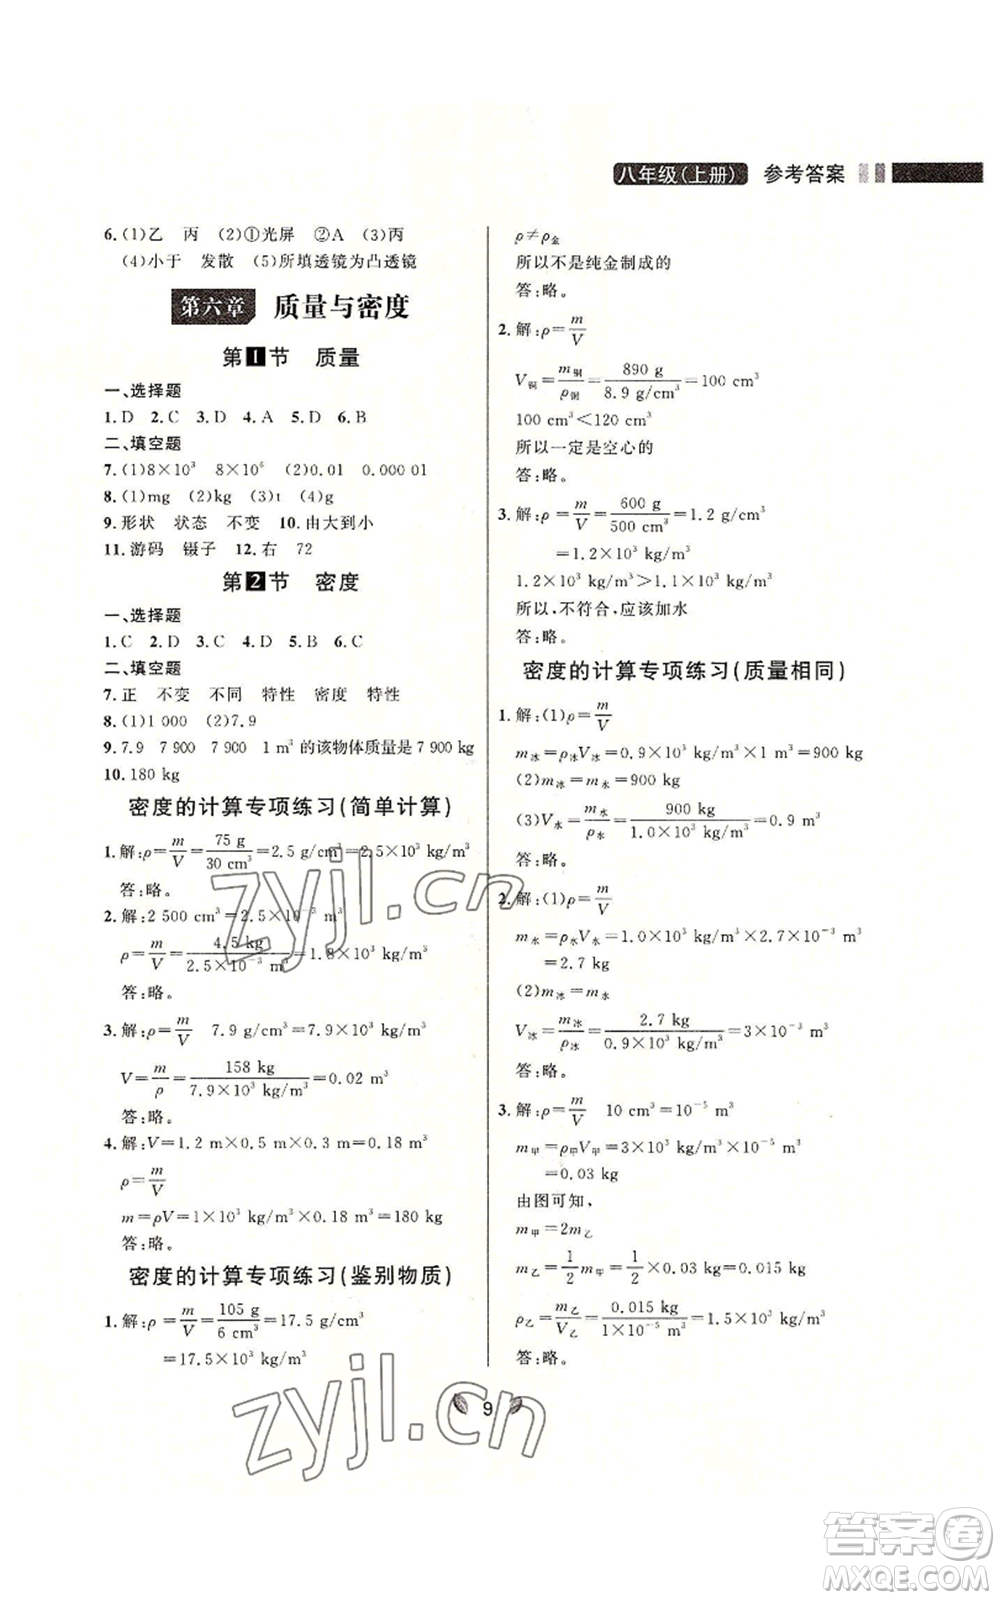 八年级(上册) 参考答案
6.(1)乙 丙 (2)①光屏 ②A (3)丙
(4)小于 发散 (5)所填透镜为凸透镜
第六章 质量与密度
第1节 质量
一、选择题
1.D 2.C 3.D 4.A 5.D 6.B
二、填空题
7.(1)8×10³ 8×10⁶ (2)0.01 0.000 01
8.(1)mg (2)kg (3)t (4)g
9.形状 状态 不变 10.由大到小
11.游码 镊子 12.右 72
第2节 密度
一、选择题
1.C 2.D 3.D 4.C 5.B 6.C
二、填空题
7.正 不变 不同 特性 密度 特性
8.(1)1 000 (2)7.9
9.7.9 7 900 7 900 1 m³的该物体质量是7 900 kg
10.180 kg
密度的计算专项练习(简单计算)
1.解:ρ=m/V=75 g/30 cm³=2.5 g/cm³=2.5×10³ kg/m³
答:略。
2.解:2 500 cm³=2.5×10⁻³ m³
ρ=m/V=4.5 kg/2.5×10⁻³ m³=1.8×10³ kg/m³
答:略。
3.解:ρ=m/V 7.9 g/cm³=7.9×10³ kg/m³
V=m/ρ=158 kg/7.9×10³ kg/m³=0.02 m³
答:略。
4.解:V=1.2 m×0.5 m×0.3 m=0.18 m³
ρ=m/V
m=ρV=1×10³ kg/m³×0.18 m³=180 kg
答:略。
密度的计算专项练习(鉴别物质)
1.解:ρ=m/V=105 g/6 cm³=17.5 g/cm³
=17.5×10³ kg/m³
ρ≠ρ金
所以不是纯金制成的
答:略。
2.解:ρ=m/V
V铜=m铜/ρ铜=890 g/8.9 g/cm³=100 cm³
100 cm³<120 cm³
所以一定是空心的
答:略。
3.解:ρ=m/V=600 g/500 cm³=1.2 g/cm³
=1.2×10³ kg/m³
1.2×10³ kg/m³>1.1×10³ kg/m³
所以,不符合,应该加水
答:略。
密度的计算专项练习(质量相同)
1.解:(1)ρ=m/V
m冰=ρ冰V冰=0.9×10³ kg/m³×1 m³=900 kg
(2)m冰=m水=900 kg
(3)V水=m水/ρ水=900 kg/1.0×10³ kg/m³=0.9 m³
答:略。
2.解:(1)ρ=m/V
m水=ρ水V水=1.0×10³ kg/m³×2.7×10⁻³ m³
=2.7 kg
(2)m冰=m水
V冰=m冰/ρ冰=2.7 kg/0.9×10³ kg/m³=3×10⁻³ m³
答:略。
3.解:ρ=m/V 10 cm³=10⁻⁵ m³
m甲=ρ甲V甲=3×10³ kg/m³×10⁻⁵ m³
=0.03 kg
由图可知、
m甲=2m乙
m乙=1/2m甲=1/2×0.03 kg=0.015 kg
ρ乙=m乙/V乙=0.015 kg/1×10⁻⁵ m³=1.5×10³ kg/m³
答:略。
9
zyjl.cn
zyjl.cn
答案卷
MXQE.COM